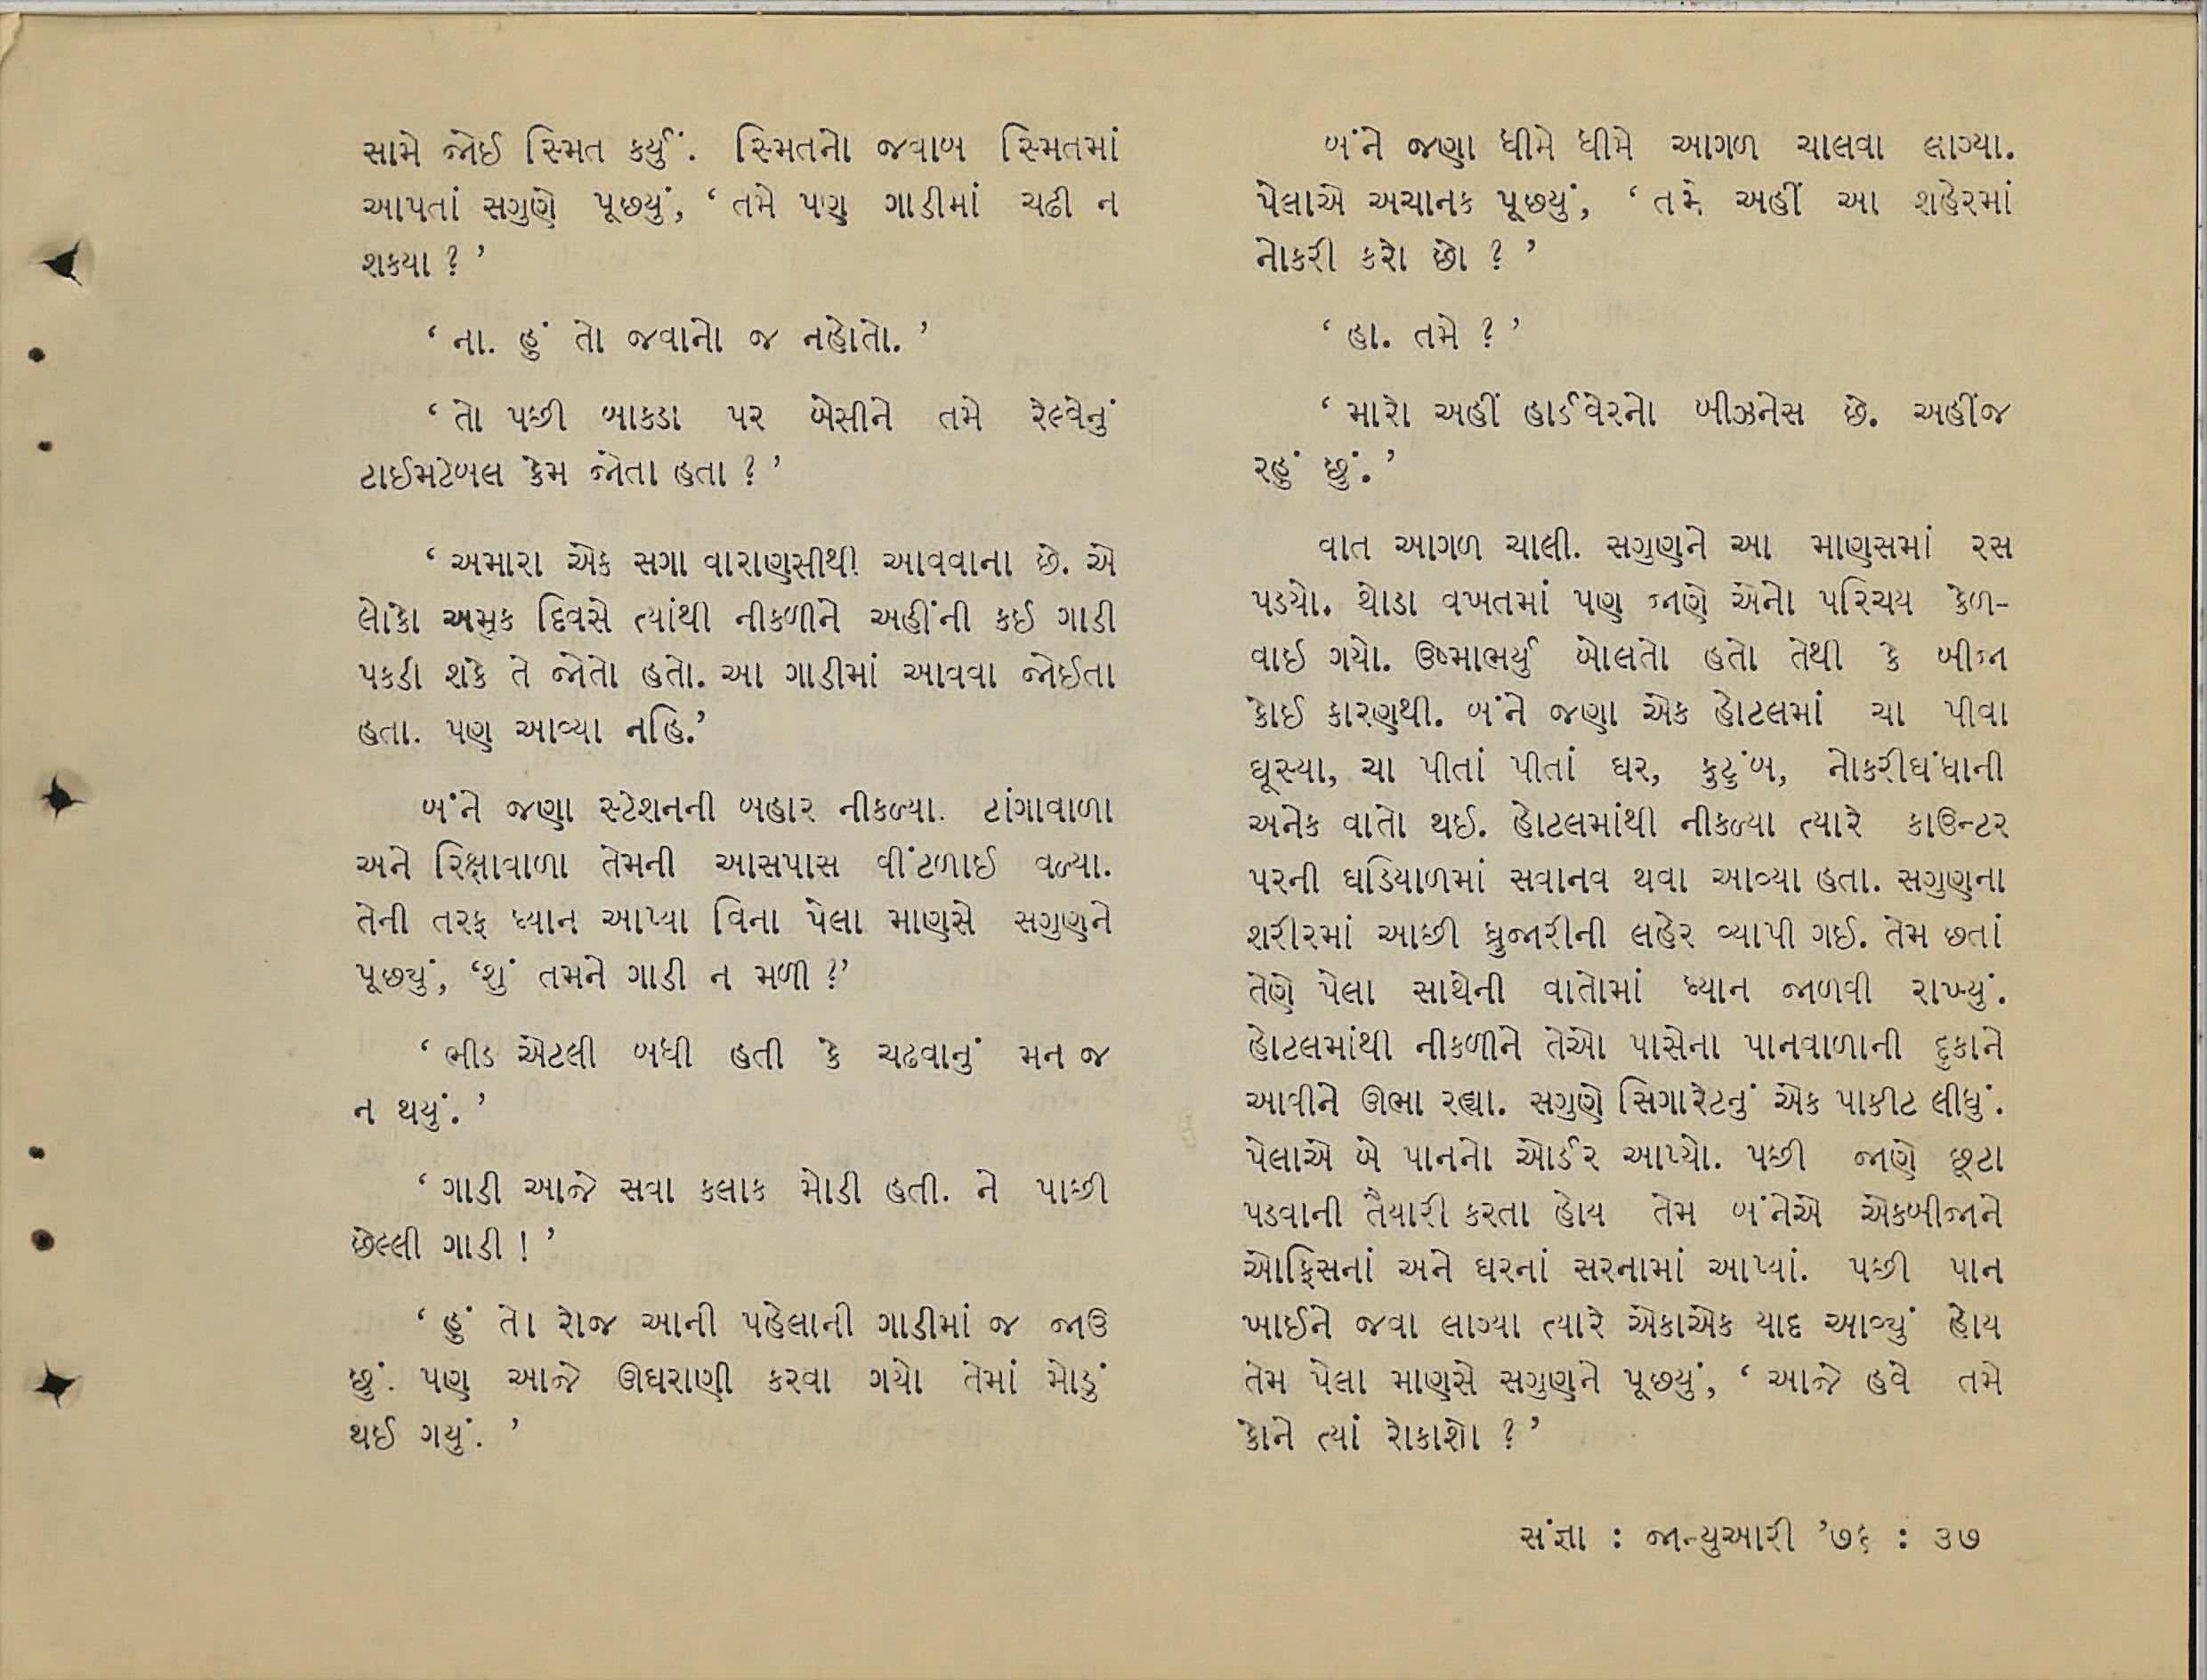 સામે જોઈ સ્મિત કર્યું. સ્મિતનો જવાબ સ્મિતમાં
આપતાં સગુણે પૂછયું, ‘ તમે પણ ગાડીમાં ચઢી ન
શકયા ? ’
‘ ના. હું તો જવાનો જ નહોતો. ’
‘ તો પછી બાકડા પર બેસીને તમે રેલ્વેનું
ટાઈમટેબલ કેમ જોતા હતા ? ’
‘ અમારા એક સગા વારાણસીથી આવવાના છે. એ
લોકો અમુક દિવસે ત્યાંથી નીકળીને અહીંની કઈ ગાડી
પકડી શકે તે જોતો હતો. આ ગાડીમાં આવવા જોઈતા
હતા. પણ આવ્યા નહિ.’
બંને જણા સ્ટેશનની બહાર નીકળ્યા. ટાંગાવાળા
અને રિક્ષાવાળા તેમની આસપાસ વીંટળાઈ વળ્યા.
તેની તરફ ધ્યાન આપ્યા વિના પેલા માણસે સગુણને
પૂછયું, ‘શું તમને ગાડી ન મળી ?’
‘ ભીડ એટલી બધી હતી કે ચઢવાનું મન જ
ન થયું. ’
‘ ગાડી આજે સવા કલાક મોડી હતી. ને પાછી
છેલ્લી ગાડી ! ’
‘ હું તો રોજ આની પહેલાની ગાડીમાં જ જાઉ
છું. પણ આજે ઊઘરાણી કરવા ગયો તેમાં મોડું
થઈ ગયું. ’
બંને જણા ધીમે ધીમે આગળ ચાલવા લાગ્યા.
પેલાએ અચાનક પૂછયું, ‘ તમે અહીં આ શહેરમાં
નોકરી કરો છો ? ’
‘ હા. તમે ? ’
‘ મારો અહીં હાર્ડવેરનો બીઝનેસ છે. અહીંજ
રહું છું. ’
વાત આગળ ચાલી. સગુણને આ માણસમાં રસ
પડયો. થોડા વખતમાં પણ જાણે એનો પરિચય કેળ-
વાઈ ગયો. ઉષ્માભર્યું બોલતો હતો તેથી કે બીજા
કોઈ કારણથી. બંને જણા એક હોટલમાં ચા પીવા
ઘૂસ્યા, ચા પીતાં પીતાં ઘર, કુટુંબ, નોકરીધંધાની
અનેક વાતો થઈ. હોટલમાંથી નીકળ્યા ત્યારે કાઉન્ટર
પરની ઘડિયાળમાં સવાનવ થવા આવ્યા હતા. સગુણના
શરીરમાં આછી ધ્રુજારીની લહેર વ્યાપી ગઈ. તેમ છતાં
તેણે પેલા સાથેની વાતોમાં ધ્યાન જાળવી રાખ્યું.
હોટલમાંથી નીકળીને તેઓ પાસેના પાનવાળાની દુકાને
આવીને ઊભા રહ્યા. સગુણે સિગારેટનું એક પાકીટ લીધું.
પેલાએ બે પાનનો ઓર્ડર આપ્યો. પછી જાણે છૂટા
પડવાની તૈયારી કરતા હોય તેમ બંનેએ એકબીજાને
ઓફિસનાં અને ઘરનાં સરનામાં આપ્યાં. પછી પાન
ખાઈને જવા લાગ્યા ત્યારે એકાએક યાદ આવ્યું હોય
તેમ પેલા માણસે સગુણને પૂછયું, ‘ આજે હવે તમે
કોને ત્યાં રોકાશો ? ’
સંજ્ઞા : જાન્યુઆરી ’૭૬ : ૩૭